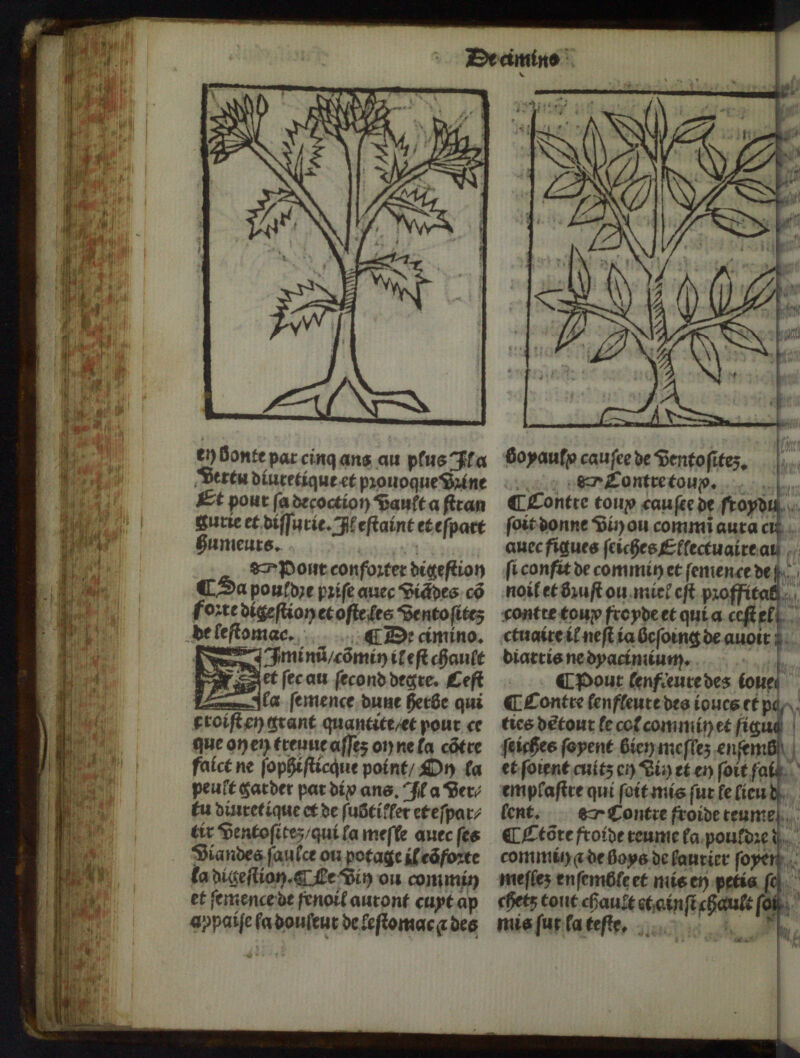 De cimino
en bonte par cinq ans au plus Il a
vertu diuretique et prouoque vrine
Et pour sa decoction vault a stran
gurie et dissurie. Il estaint et espart
humeurs.
☞ Pour conforter digestion
¶ Sa pouldre prise auec viādes cō
forte digestion et oste les ventositez
de lestomac. ¶ De cimino.
Iminū/cōmin il est chault
et sec au second degre. Cest
la semence dune herbe qui
croist en grant quantite/et pour ce
que on en treuue assez on ne la cōtre
faict ne sophisticque point/ On la
peult garder par dix ans. Il a ver/
tu diuretique et de subtiller et espar/
tir ventositez/qui la mesle auec ses
viandes saulce ou potage il cōforte
la digestion. ¶ Le vin ou commin
et semence de fenoil auront cuyt ap
appaise la douleur de lestomac & des
boyaulx causee de ventositez.
☞ Contre toux.
¶ Contre toux causee de froydu
soit donne vin ou commi aura cu
auec figues seiches Ellectuaire au
si confit de commin et semence de
noil et brust ou miel est proffitab
contre toux froyde et qui a cest el
ctuaire il nest ia besoing de auoir
diatris ne dyaciminum.
¶ Pour lenfleure des ioues
¶ Contre lenfleure des ioues et pa
ties dētour le col commin et figue
seiches soyent bien meslez ensemb
et soient cuitz en vin et en soit fai
emplastre qui soit mis sur le lieu d
lent. ☞ Contre froide reume
¶ Cōtre froide reume la pouldre d
commin & de baye de laurier soyen
meslez ensemble et mis en petis sa
chetz tout chault et ainsi chault soi
mis sur la teste.